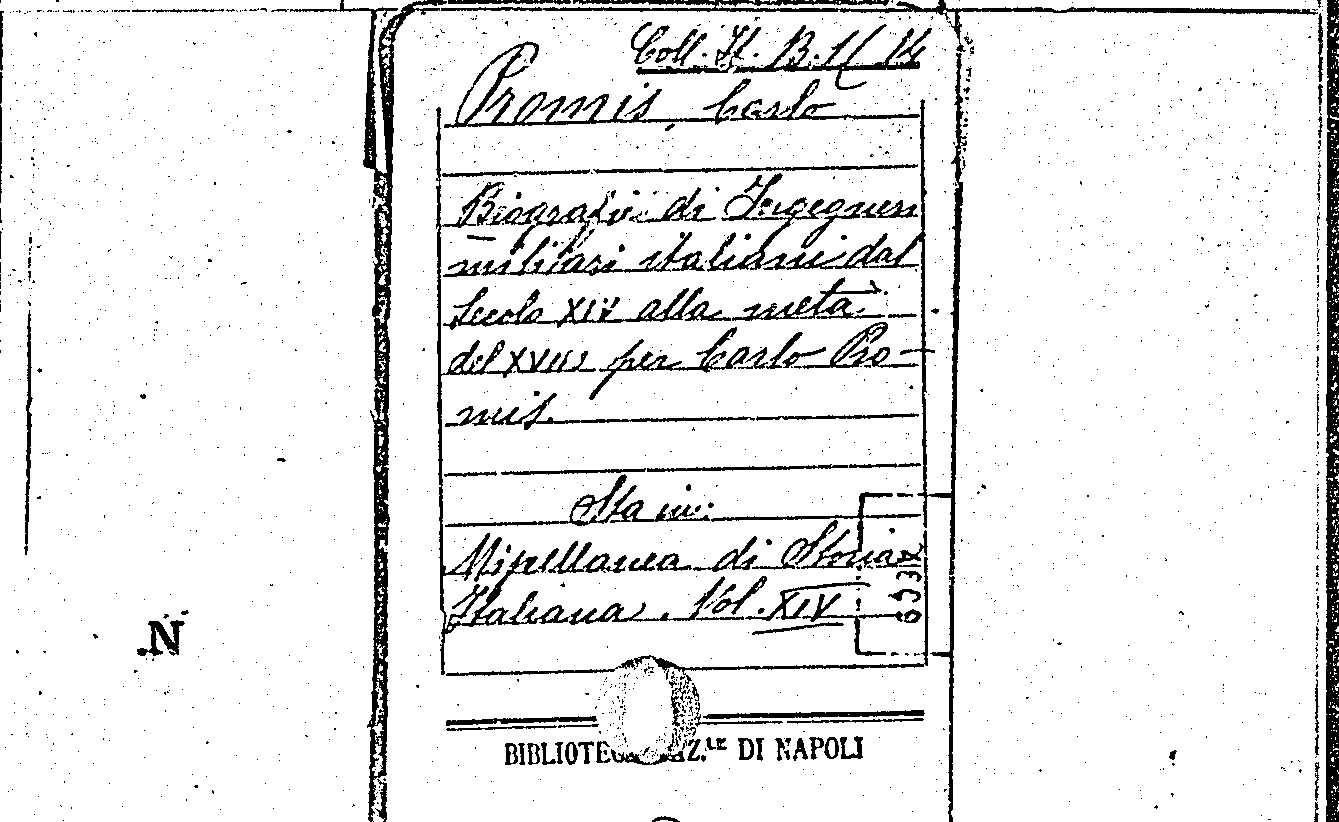 Coll. It. B. 1/ 14
Promis, Carlo
Biografie di Ingegneri
militari italiani dal
secolo XIV alla metà
del XVIII per Carlo Pro-
mis.
Sta in:
Miscellanea di Storia
Italiana. Vol. XIV
693
.N
BIBLIOTECA DI NAPOLI